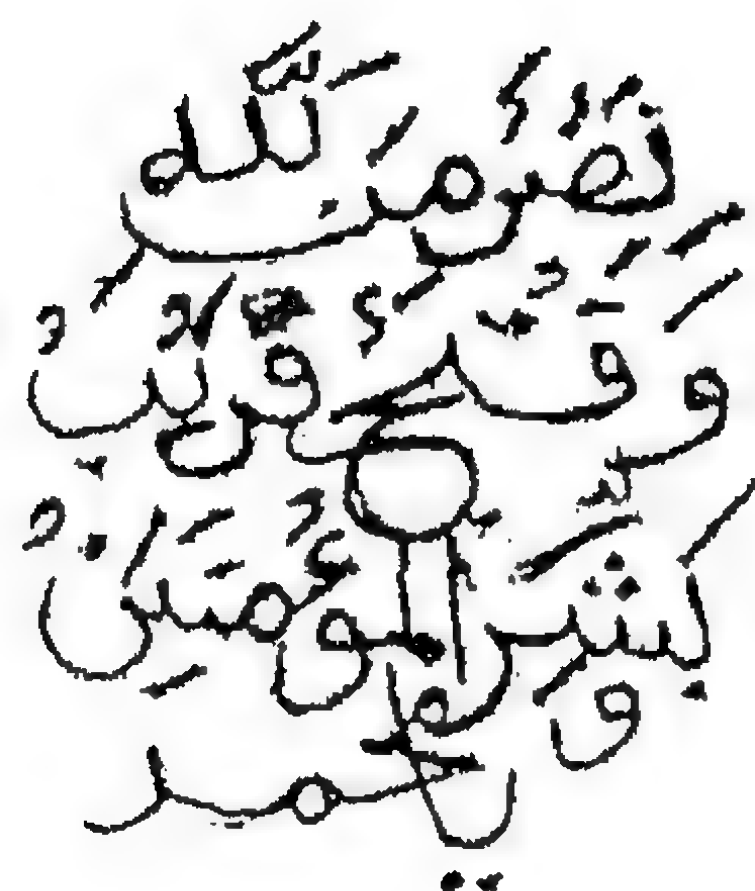 نَصْرٌ مِنَ اللَّهِ
وَفَتْحٌ قَرِيبٌ
وَبَشِّرِ الْمُؤْمِنِينَ
يا محمد